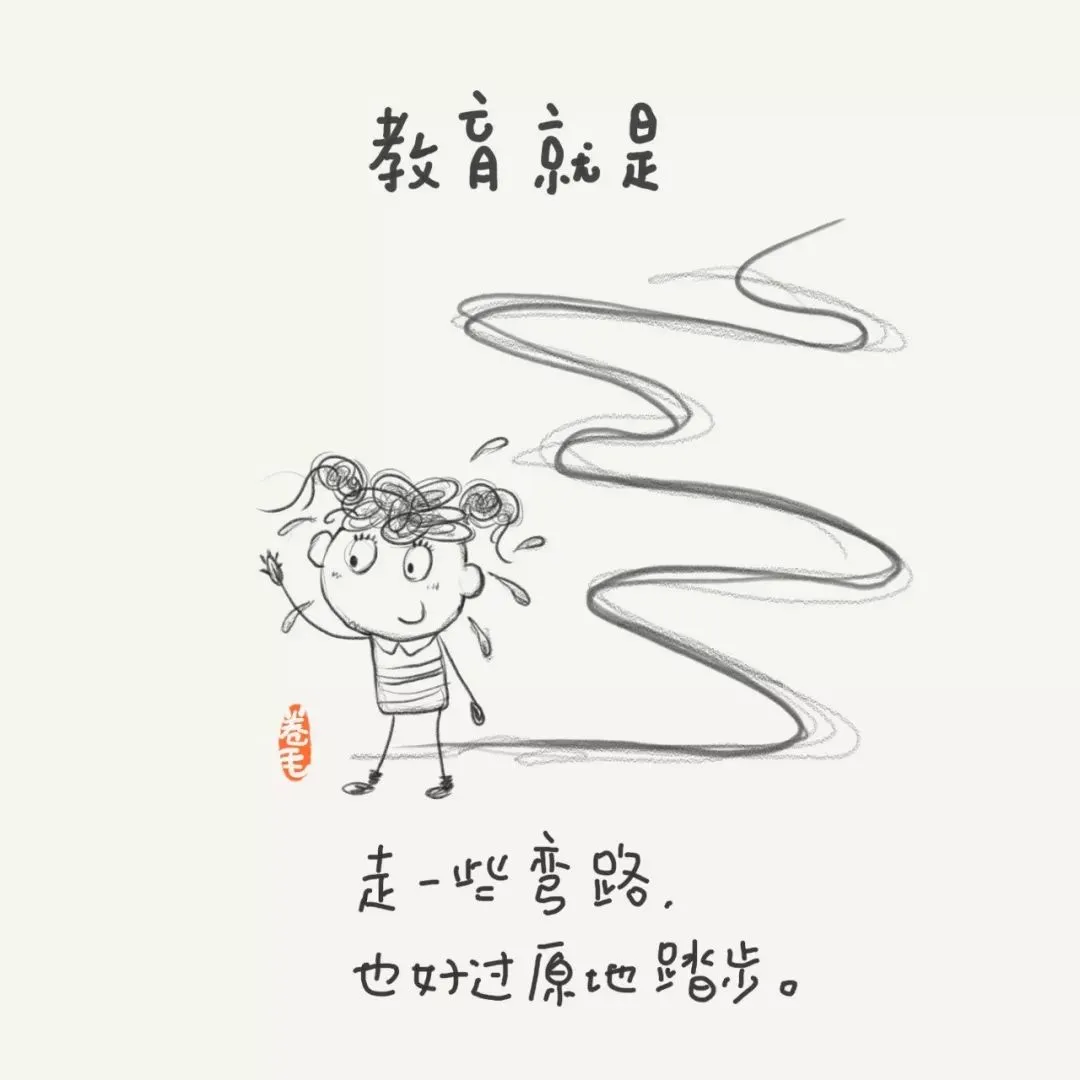 教育就是
卷毛
走一些弯路,
也好过原地踏步。